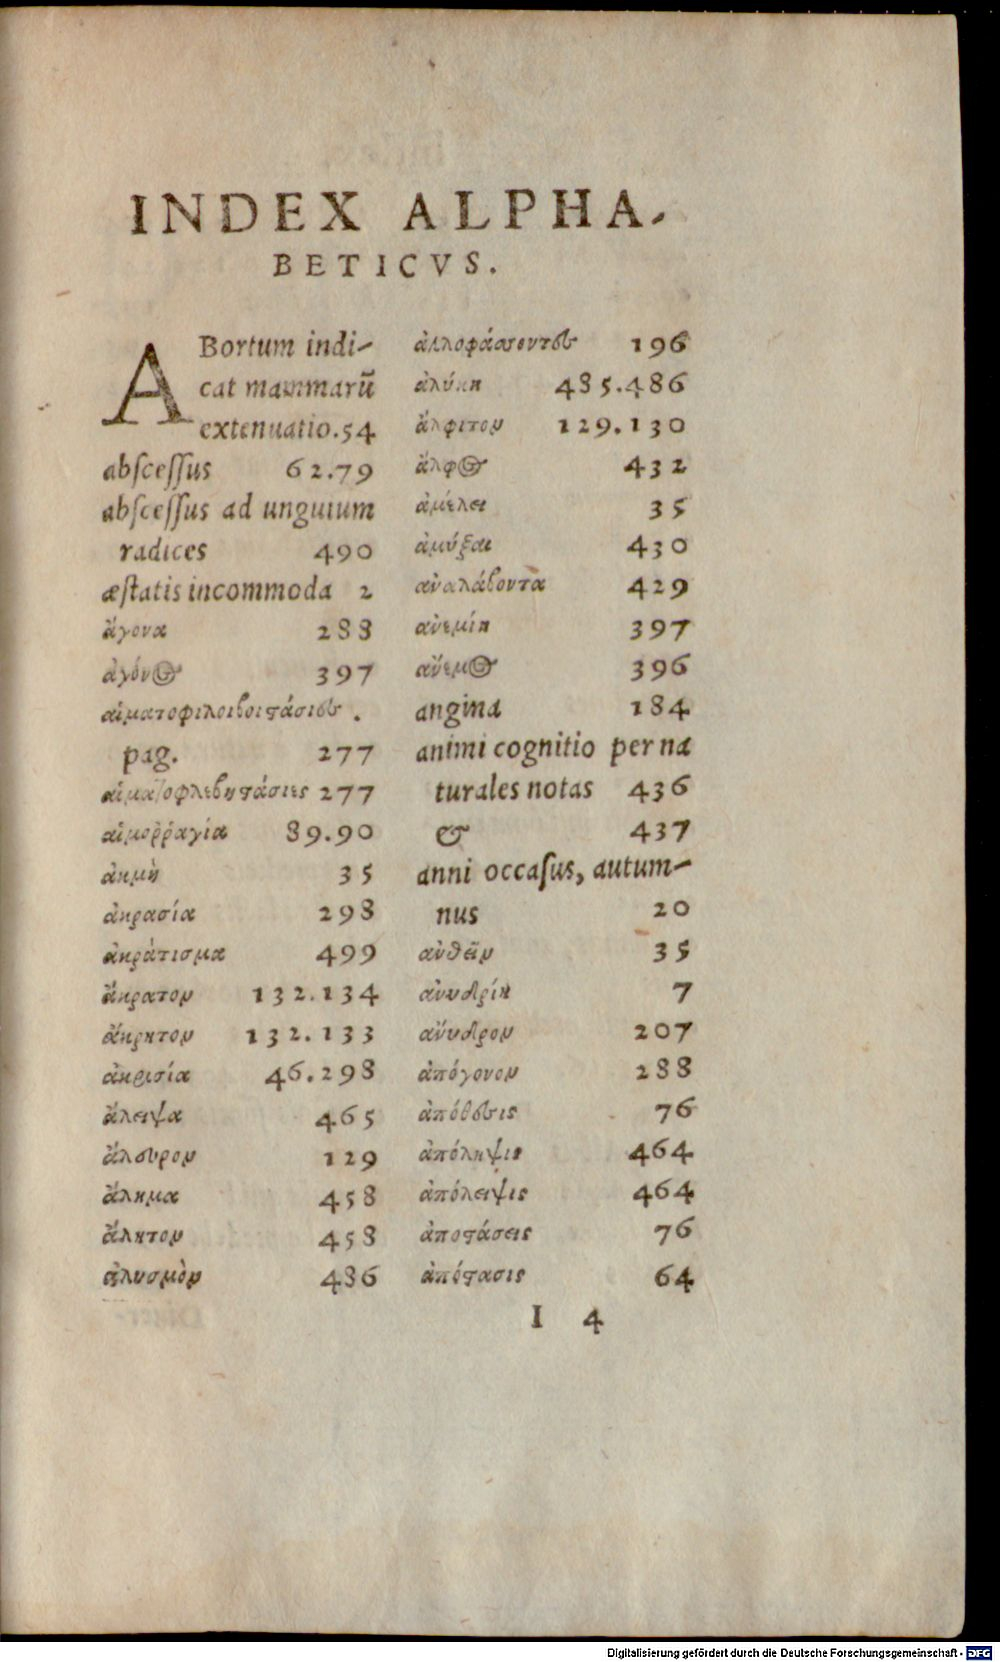 INDEX ALPHA-
BETICVS.
ABortum indi-
cat mammarū
extenuatio.54
abſceſſus 62.79
abſceſſus ad unguium
radices 490
æſtatis incommoda 2
ἄγονα 288
ἀγόνος 397
αἱματοφιλοιβοιϛάσιες .
pag. 277
αἱματοφλεβηϛάσιες 277
αἱμοῤῥαγία 89.90
ἀκμὴ 35
ἀκρασία 298
ἀκράτισμα 499
ἄκρατον 132.134
ἄκρητον 132.133
ἀκρισία 46.298
ἄλειψα 465
ἄλευρον 129
ἄλημα 458
ἄλητον 458
ἀλυσμὸν 486
ἀλλοφάσσοντες 196
ἀλύκη 485.486
ἄλφιτον 129.130
ἄλφος 432
ἀμέλει 35
ἀμύξαι 430
ἀναλάβοντα 429
ἀνεμίη 397
ἄνεμος 396
angina 184
animi cognitio per na
turales notas 436
& 437
anni occaſus, autum-
nus 20
ἀνθεῖν 35
ἀνυδρίη 7
ἄνυδρον 207
ἀπόγονον 288
ἀπόθεσις 76
ἀπόληψις 464
ἀπόλειψις 464
ἀποϛάσεις 76
ἀπόϛασις 64
I 4
Digitalisierung gefördert durch die Deutsche Forschungsgemeinschaft - DFG